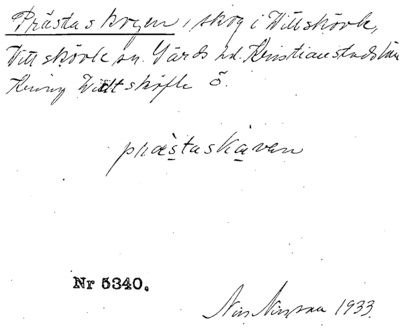 Prästaskogen, skog i Vittskövle,
Vittskövle sn. Gärds hd. Kristianstads län
Kring Vittsköfle Ö.
prästaskaven
Nr 5340.
Nils 1933.